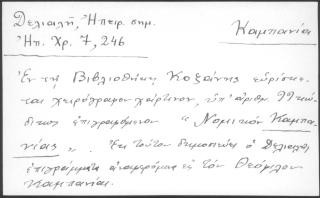 Δελιαλῆ, Ἠπειρ. σημ.
Ἠπ. Χρ. 7, 246
Καμπανία
Ἐν τῇ Βιβλιοθήκῃ Κοζάνης εὑρίσκε-
ται χειρόγραφον χάρτινον, ὑπ' ἀριθμ. 99 κώ-
δικος ἐπιγραφόμενον "Νομικὸν Καμπα-
νίας". Ἐκ τούτου δημοσιεύει ὁ Δελιαλῆς
ἐπιγράμματα ἀναφερόμενα εἰς τὸν Θεόφιλον
Καμπανίας.